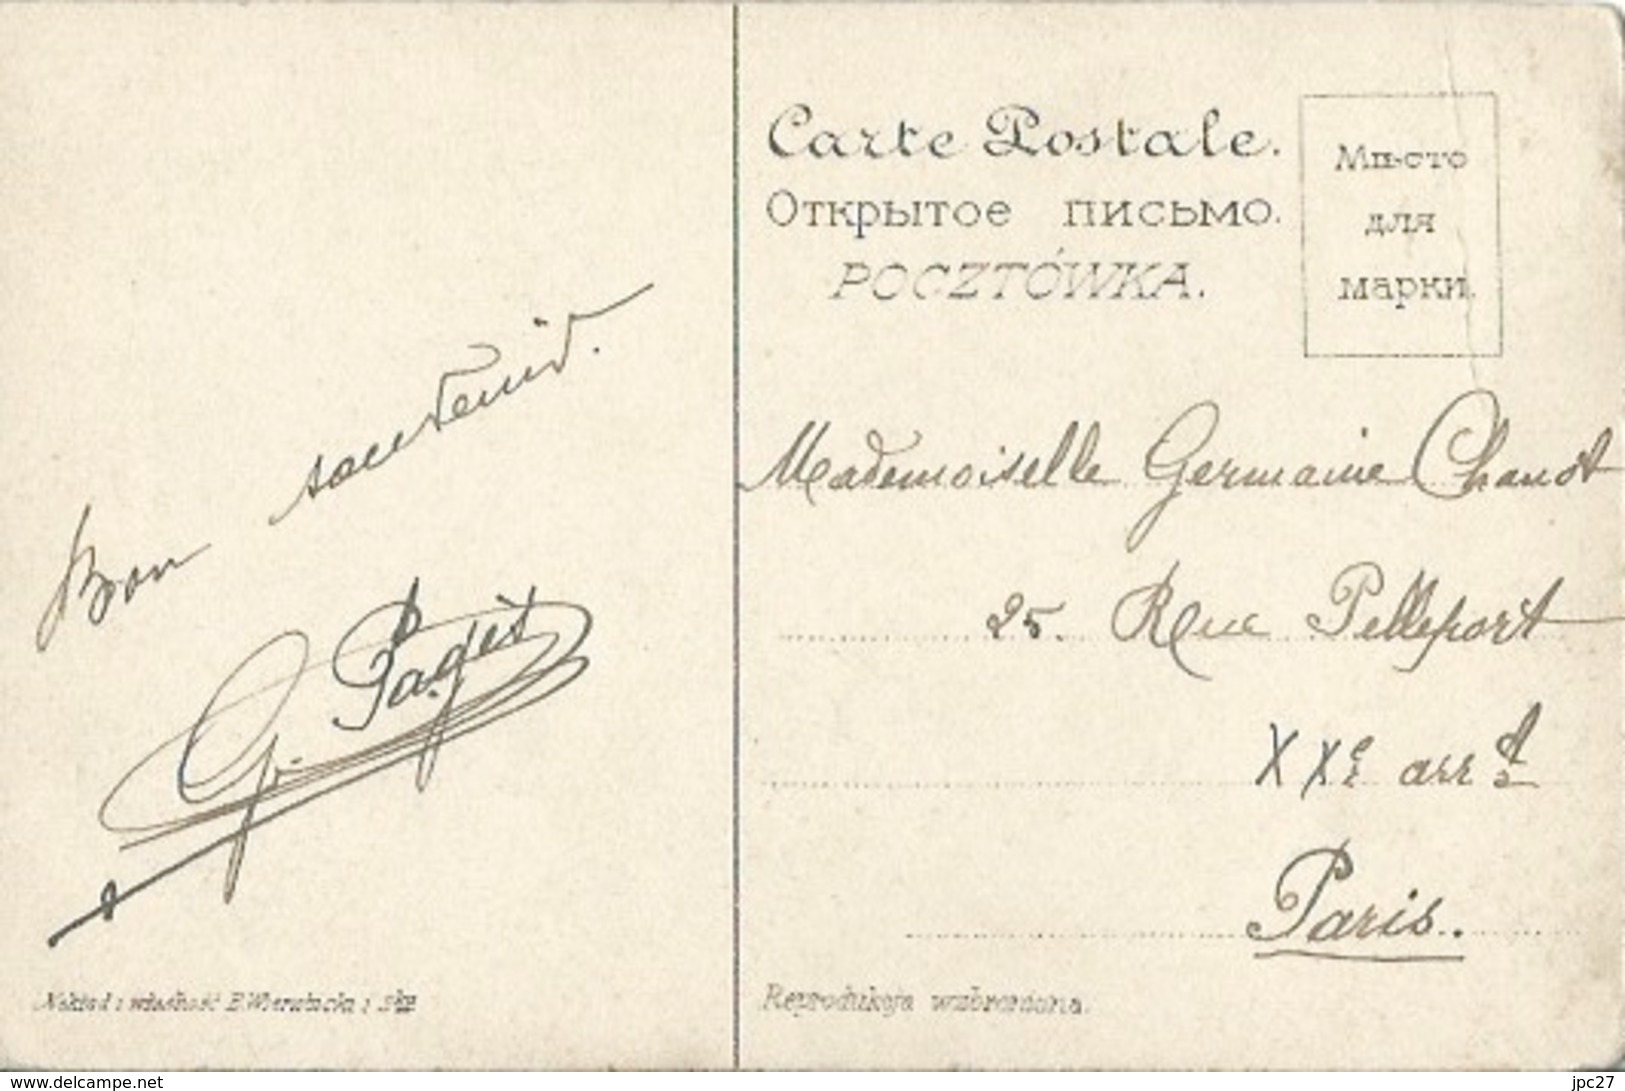 Carte Postale.
Открытое письмо.
POCZTÓWKA.
Мѣсто
для
марки.
Bon souvenir.
G. Paget
Mademoiselle Germaine Chanot
25. Rue Pelleport
XXe arrt
Paris.
Nakład i własność B. Wierzbicki i Ska
Reprodukcja wzbroniona.
www.delcampe.net
jpc27